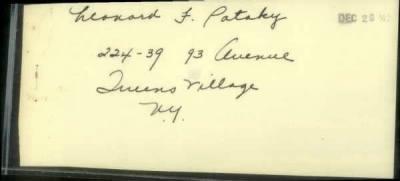 Leonard F. Pataky
DEC 28
224-39 93 Avenue
Queens Village
N.Y.